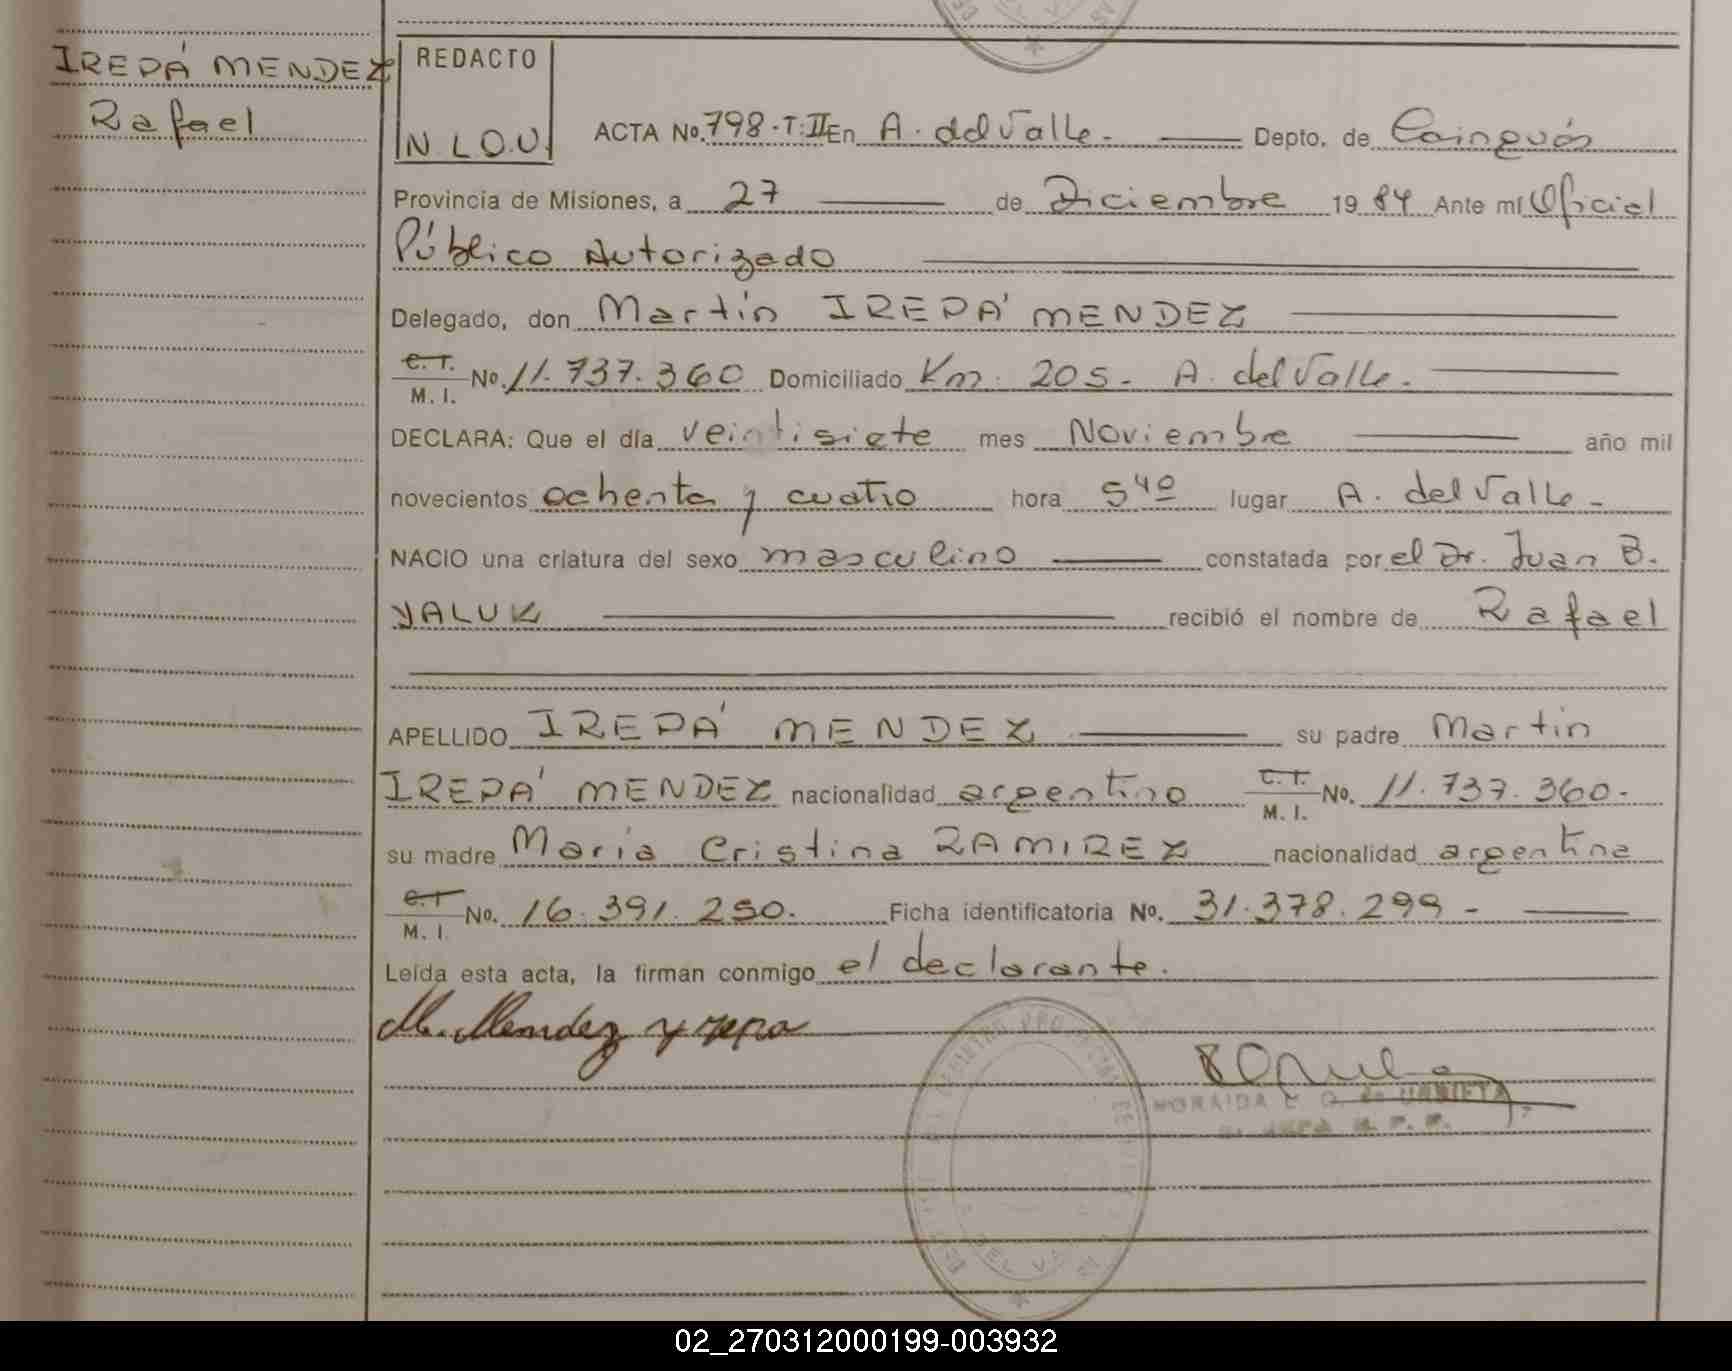 IREPÁ MENDEZ
Rafael
REDACTO
N.L.O.U.
ACTA No. 798.T:II En A. del Valle. Depto. de Cainguás
Provincia de Misiones, a 27 de Diciembre 19 84 Ante mí Oficial
Público Autorizado
Delegado, don Martín IREPÁ MENDEZ
C.T. M.I. No. 11.737.360 Domiciliado Km. 205. A. del Valle.
DECLARA: Que el día veintisiete mes Noviembre año mil
novecientos ochenta y cuatro hora 5 40 lugar A. del Valle.
NACIO una criatura del sexo masculino constatada por el Dr. Juan B.
YALUK recibió el nombre de Rafael
APELLIDO IREPÁ MENDEZ su padre Martín
IREPÁ MENDEZ nacionalidad argentino C.T. M.I. No. 11.737.360.
su madre María Cristina RAMIREZ nacionalidad argentina
C.T M.I. No. 16.391.250. Ficha identificatoria No. 31.378.299-
Leída esta acta, la firman conmigo el declarante.
M. Mendez y repa
02_270312000199-003932